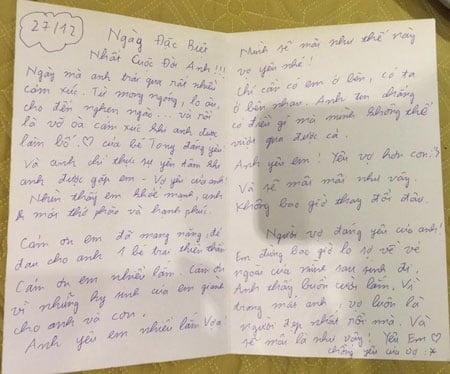 27/12
Ngày Đặc Biệt
Nhất Cuộc Đời Anh!!!
Ngày mà anh trải qua rất nhiều
cảm xúc. Từ mong ngóng, lo âu,
cho đến nghẹn ngào... và rồi
là vỡ òa cảm xúc khi anh được
làm bố của bé Tong đáng yêu!
Và anh chỉ thực sự yên tâm khi
anh được gặp em - Vợ yêu của anh!
Nhìn thấy em khỏe mạnh, anh
mới thở phào và hạnh phúc.
Cám ơn em đã mang nặng, đẻ
đau cho anh 1 bé trai thiên thần
Cám ơn em nhiều lắm. Cám ơn
vì những hy sinh của em giành
cho anh và con.
Anh yêu em nhiều lắm Vợ ạ!
Mình sẽ mãi như thế này
vợ yêu nhé!
Chỉ cần có em ở bên, có ta
ở bên nhau. Anh tin rằng
có điều gì mà mình không thể
vượt qua được cả.
Anh yêu em! Yêu vợ hơn con
Và sẽ mãi mãi như vậy.
Không bao giờ thay đổi đâu.
Người vợ đáng yêu của anh!
Em đừng bao giờ lo sợ về vẻ
ngoài của mình sau sinh đi.
Anh thấy buồn cười lắm. Vì
trong mắt anh, vợ luôn là
người đẹp nhất rồi mà. Và
sẽ mãi là như vậy! Yêu Em ♡
chồng yêu của vợ :*